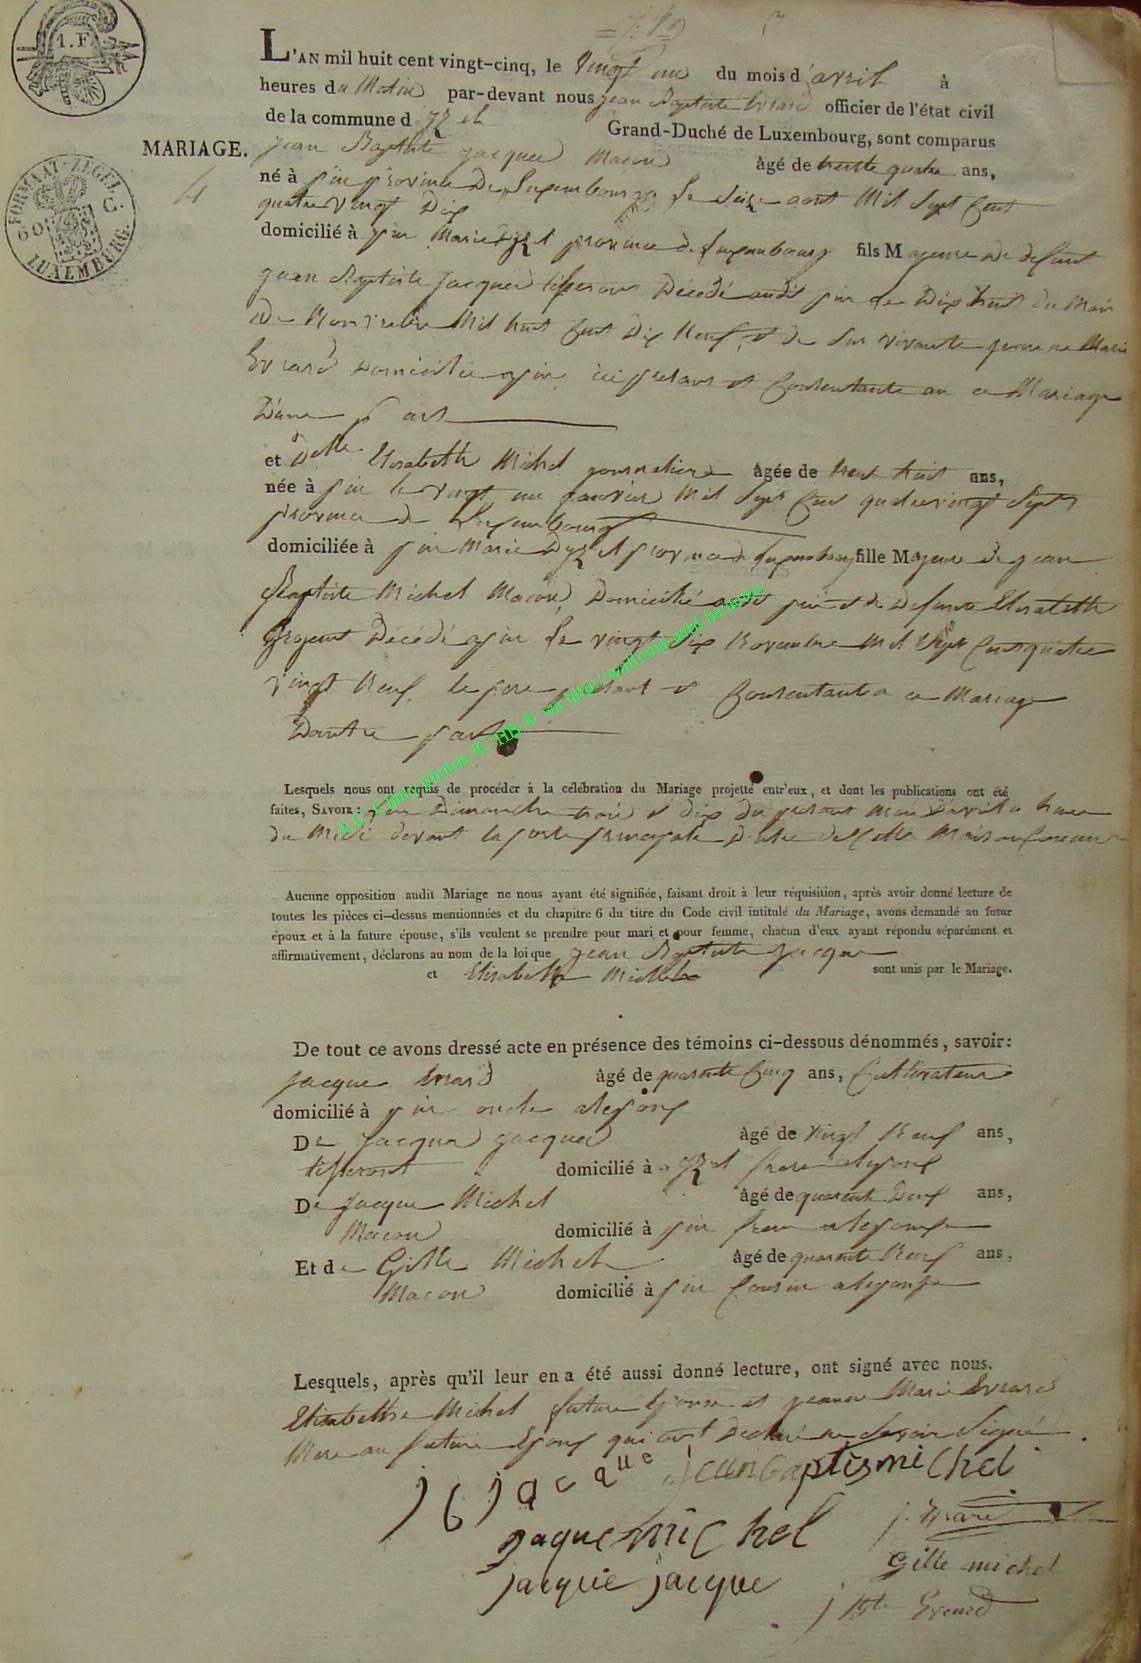 1. F.
L'AN mil huit cent vingt-cinq, le Vingt une du mois d'avril à
heures du Matin par-devant nous jean Baptiste Evrard officier de l'état civil
de la commune d'yzel Grand-Duché de Luxembourg, sont comparus
MARIAGE. jean Baptiste jacques Macon âgé de trente quatre ans,
4
FORMAAT-ZEGEL 60 C. LUXEMBURG.
né à pin province De Luxembourg le Seize aout Mil Sept Cent
quatre vingt Dix
domicilié à pin Mairie D'yzel province de Luxembourg fils Majeure de defunt
jean Baptiste jacques tisserant Décédé audit pin le Dix huit du Mois
De Novembre Mil huit Cent Dix Neuf, et de Survivante jeanne Marie
Evrard Domiciliée a pin ici presant et Consentante au ce Mariage
D'une part
et Delle Elisabeth Michel journaliere âgée de trent huit ans,
née à pin le vingt une janvier Mil Sept Cent quatrevingt Sept
province de Luxembourg
domiciliée à pin Mairie D'yzel province de Luxembourg fille Majeure de jean
Baptiste Michel Macon, Domicilié audit pin et de Defunte Elisabeth
Décédé a pin le vingt Six Novembre Mil Sept Cent quatre
vingt Neuf, le pere presant et Consentant a ce Mariage
Dautre part
A.C. Chiny photos JC/HB © via http://wallonia-asbl.be/news
Lesquels nous ont requis de procéder à la célébration du Mariage projetté entr'eux, et dont les publications ont été
faites, Savoir: Dimanche trois et dix du presant Mois Davril a heure
du Midi devant la porte principale Dentree de Cette Maison Commune
Aucune opposition audit Mariage ne nous ayant été signifiée, faisant droit à leur réquisition, après avoir donné lecture de
toutes les pièces ci-dessus mentionnées et du chapitre 6 du titre du Code civil intitulé du Mariage, avons demandé au futur
époux et à la future épouse, s'ils veulent se prendre pour mari et pour femme, chacun d'eux ayant répondu séparément et
affirmativement, déclarons au nom de la loi que jean Baptiste jacque
et Elisabeth Michel sont unis par le Mariage.
De tout ce avons dressé acte en présence des témoins ci-dessous dénommés, savoir:
jacque Evrard âgé de quarante Cinq ans, Cultivateur
domicilié à pin oncle alepoux
De jacques jacques âgé de vingt Neuf ans,
tisserant domicilié à yzel frere alepoux
De jacque Michel âgé de quarente Deux ans,
Macon domicilié à pin frere a lepouse
Et de Gille Michel âgé de quarante Neuf ans,
Macon domicilié à pin Cousin a lepouse
Lesquels, après qu'il leur en a été aussi donné lecture, ont signé avec nous.
Elisabethe Michel future Epouse et jeanne Marie Evrard
Mere au future Epoux qui ont Declaré ne Savoir Signé.
j b jacque jeanbaptis michel
jaque michel j. Evrard
Gille michel
jacque jacque
j Bte Evrard